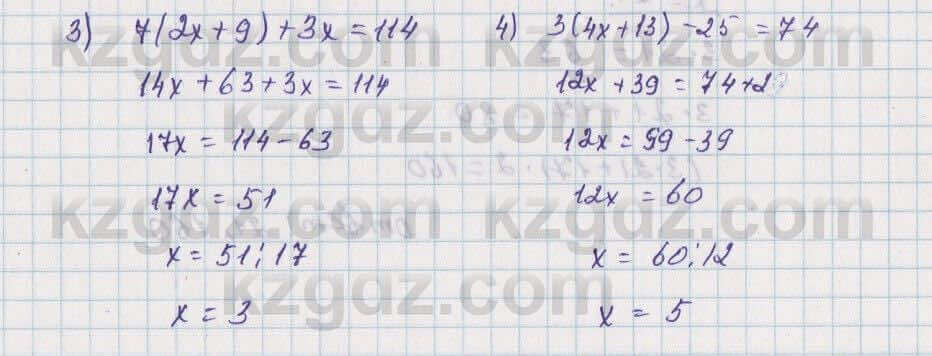 3) 7(2x+9)+3x=114
14x+63+3x=114
17x=114-63
17x=51
x=51:17
x=3
4) 3(4x+13)-25=74
12x+39=74+2
12x=99-39
12x=60
x=60:12
x=5
kzgdz.com